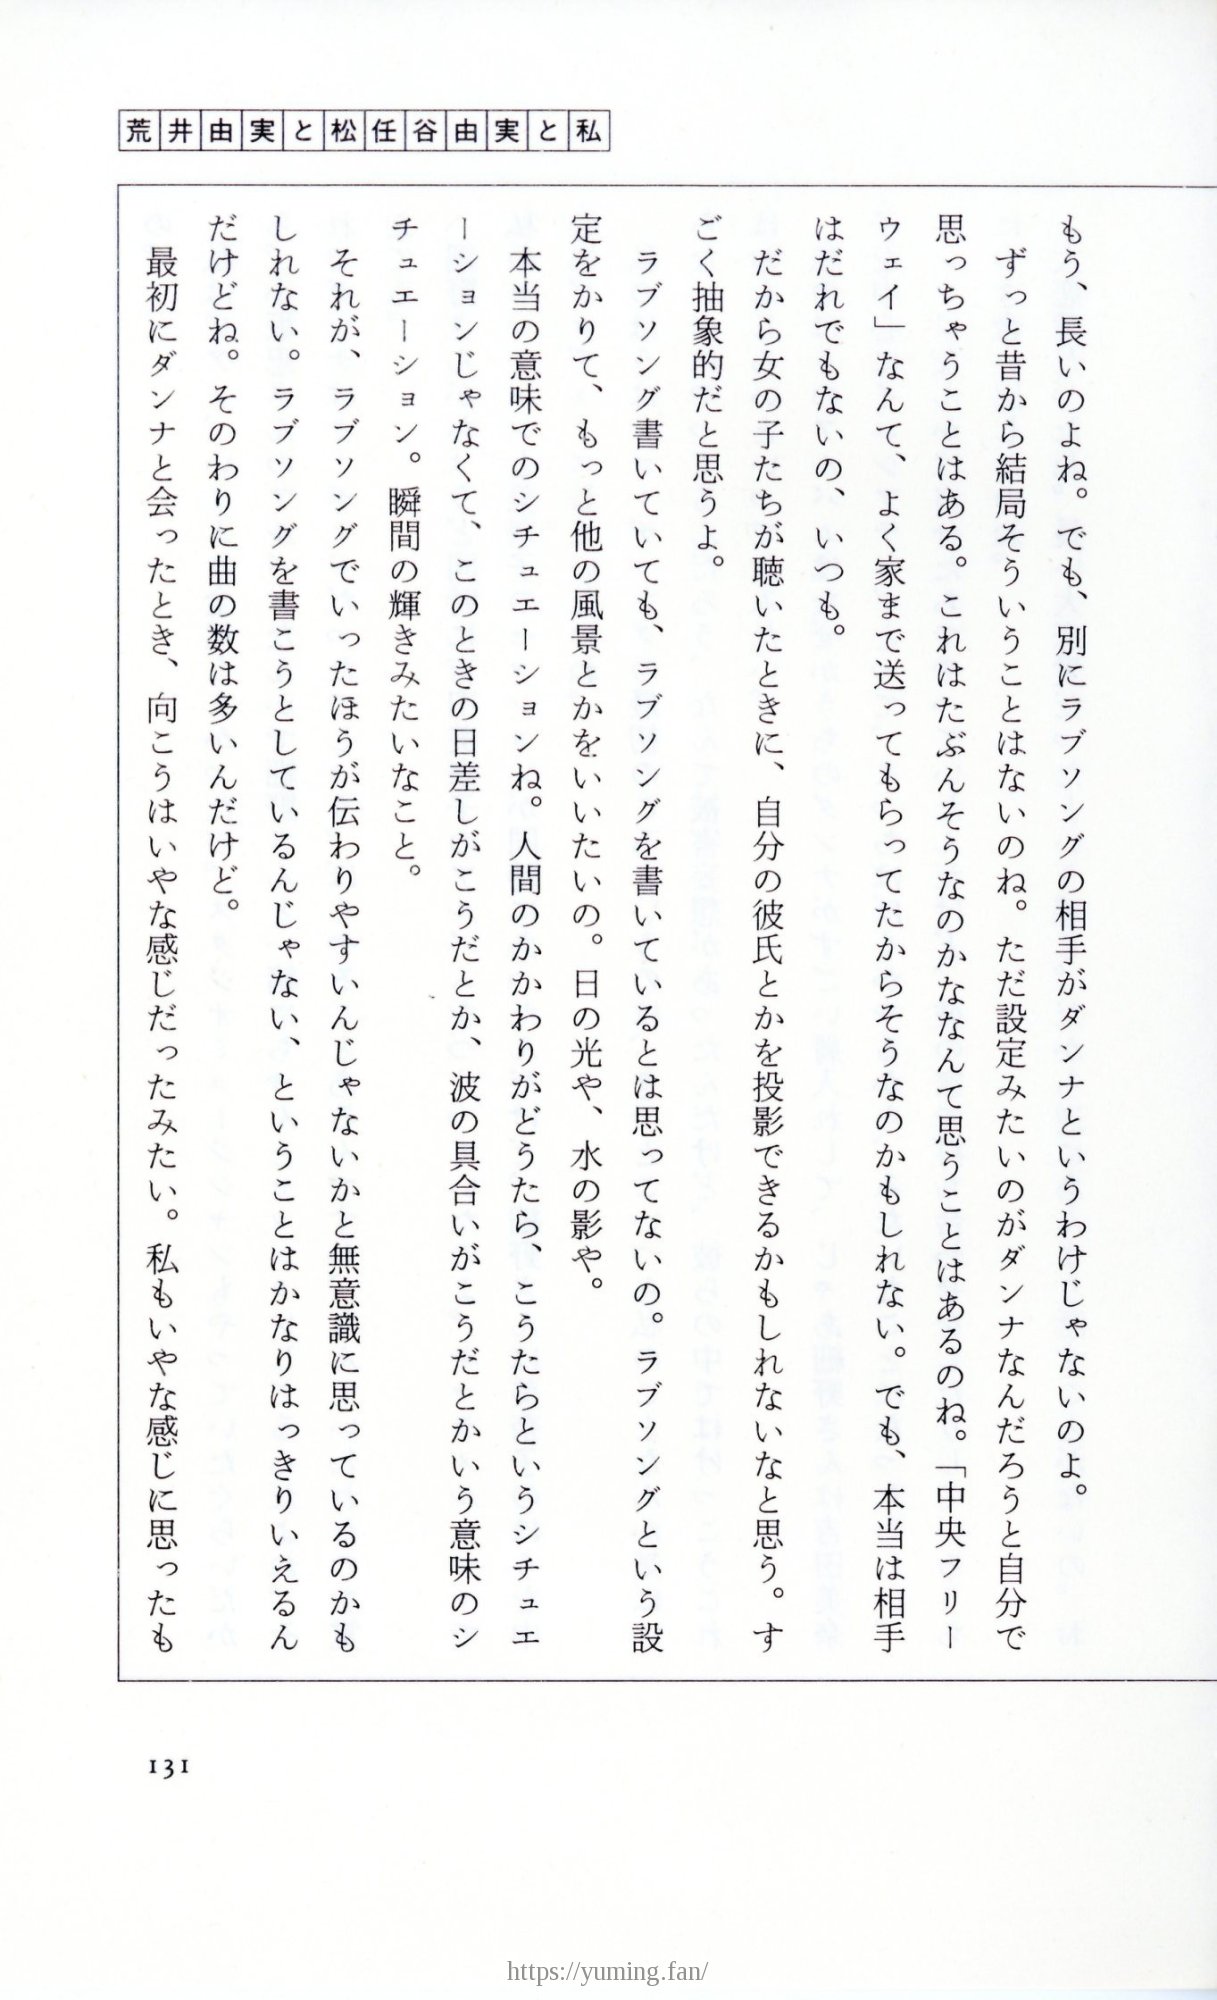 荒井由実と松任谷由実と私
もう、長いのよね。でも、別にラブソングの相手がダンナというわけじゃないのよ。
ずっと昔から結局そういうことはないのね。ただ設定みたいのがダンナなんだろうと自分で
思っちゃうことはある。これはたぶんそうなのかななんて思うことはあるのね。「中央フリー
ウェイ」なんて、よく家まで送ってもらってたからそうなのかもしれない。でも、本当は相手
はだれでもないの、いつも。
だから女の子たちが聴いたときに、自分の彼氏とかを投影できるかもしれないなと思う。す
ごく抽象的だと思うよ。
ラブソング書いていても、ラブソングを書いているとは思ってないの。ラブソングという設
定をかりて、もっと他の風景とかをいいたいの。日の光や、水の影や。
本当の意味でのシチュエーションね。人間のかかわりがどうたら、こうたらというシチュエ
ーションじゃなくて、このときの日差しがこうだとか、波の具合いがこうだとかいう意味のシ
チュエーション。瞬間の輝きみたいなこと。
それが、ラブソングでいったほうが伝わりやすいんじゃないかと無意識に思っているのかも
しれない。ラブソングを書こうとしているんじゃない、ということはかなりはっきりいえるん
だけどね。そのわりに曲の数は多いんだけど。
最初にダンナと会ったとき、向こうはいやな感じだったみたい。私もいやな感じに思ったも
131
https://yuming.fan/